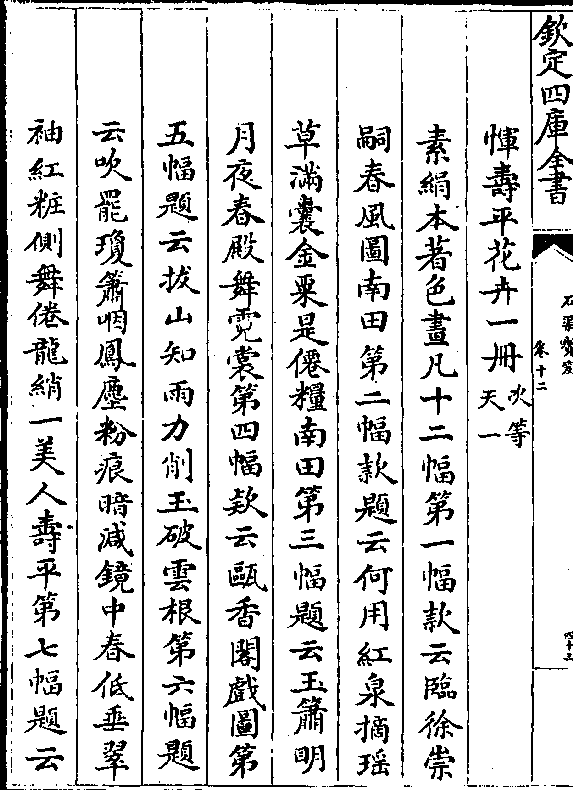 欽定四庫全書
石渠寶笈
卷十二
四十三
惲壽平花卉一冊次等
天一
素絹本著色畫凡十二幅第一幅款云臨徐崇
嗣春風圖南田第二幅款題云何用紅泉摘瑤
草滿囊金粟是僊糧南田第三幅題云玉簫明
月夜春殿舞霓裳第四幅款云甌香閣戲圖第
五幅題云拔山知雨力削玉破雲根第六幅題
云吹罷瓊簫咽鳳塵粉痕暗減鏡中春低垂翠
袖紅粧側舞倦龍綃一美人壽平第七幅題云